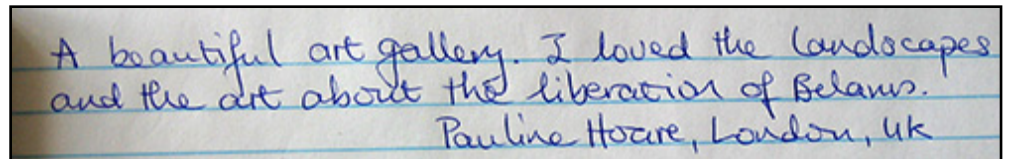 A beautiful art gallery. I loved the landscapes
and the art about the liberation of Belarus.
Pauline Hoare, London, UK